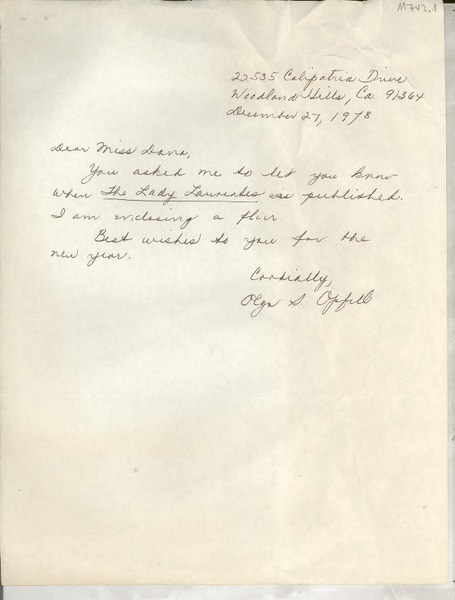 M742.1
22535 Calipatria Drive
Woodland Hills, Ca 91364
December 27, 1978
Dear Miss Dana,
You asked me to let you know
when The Lady Laureates was published.
I am enclosing a flier
Best wishes to you for the
new year.
Cordially,
Olga S Opfell